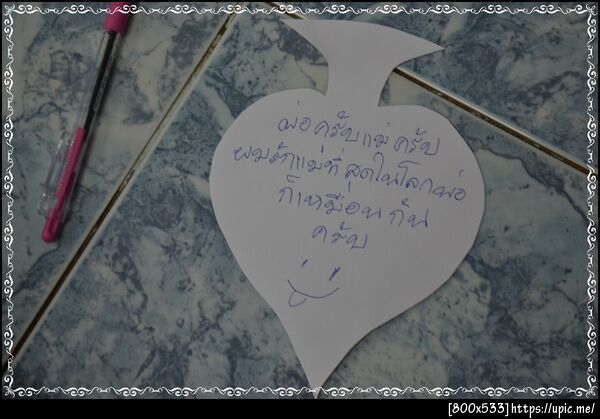 พ่อครับแม่ครับ
ผมรักแม่ที่สุดในโลกพ่อ
ก็เหมือนกัน
ครับ
[800x533] https://upic.me/